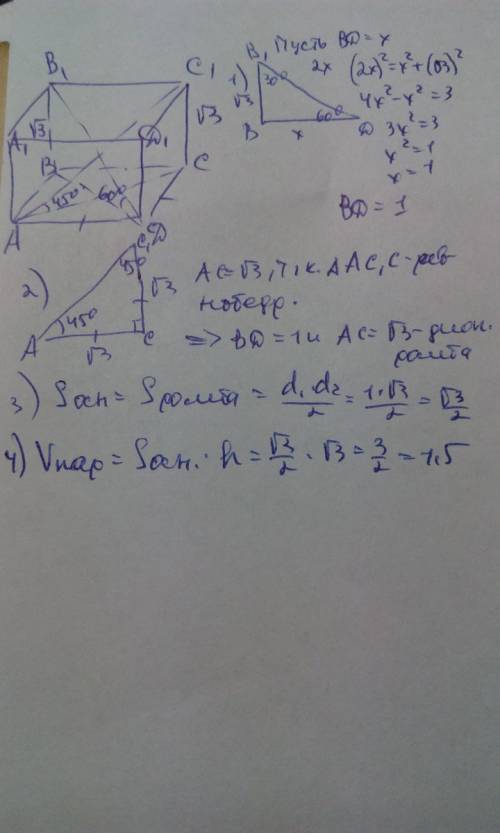 B₁
C₁
A₁
√3
D₁
√3
B
C
45°
60°
A
D
1)
B₁ Пусть BD = x
30°
√3
2x
B
x
60°
D
(2x)² = x² + (√3)²
4x² - x² = 3
3x² = 3
x² = 1
x = 1
BD = 1
2)
C₁
45°
√3
A
45°
√3
C
AC = √3, т.к. △AC₁C - рав-
нобедр.
=> BD = 1 и AC = √3 - диаг.
ромба
3) Sосн = Sромба = d₁·d₂/2 = 1·√3/2 = √3/2
4) Vпар = Sосн · h = √3/2 · √3 = 3/2 = 1,5